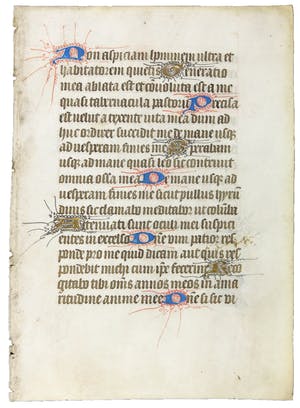 Non aspiciam hominem ultra et
habitatorem quietis Generatio
mea ablata est et conuoluta est a me
quasi tabernacula pastorũ Precisa
est uelut a texente uita mea dum ad
huc ordirer succidit me de mane usq₃
ad uesperam finies me Sperabam
usq₃ ad mane quasi leo sic contriuit
omnia ossa mea De mane usq₃ ad
uesperam finies me sicut pullus hyrũ
dinis sic clamabo meditabor ut colũba
Attenuati sunt oculi mei suspici
entes in excelso Dñe uim patior res
ponde pro me quid dicam aut quis res
pondebit michi cum ip̃e fecerim Reco
gitabo tibi om̃s annos meos in ama
ritudine anime mee Dñe si sic ui